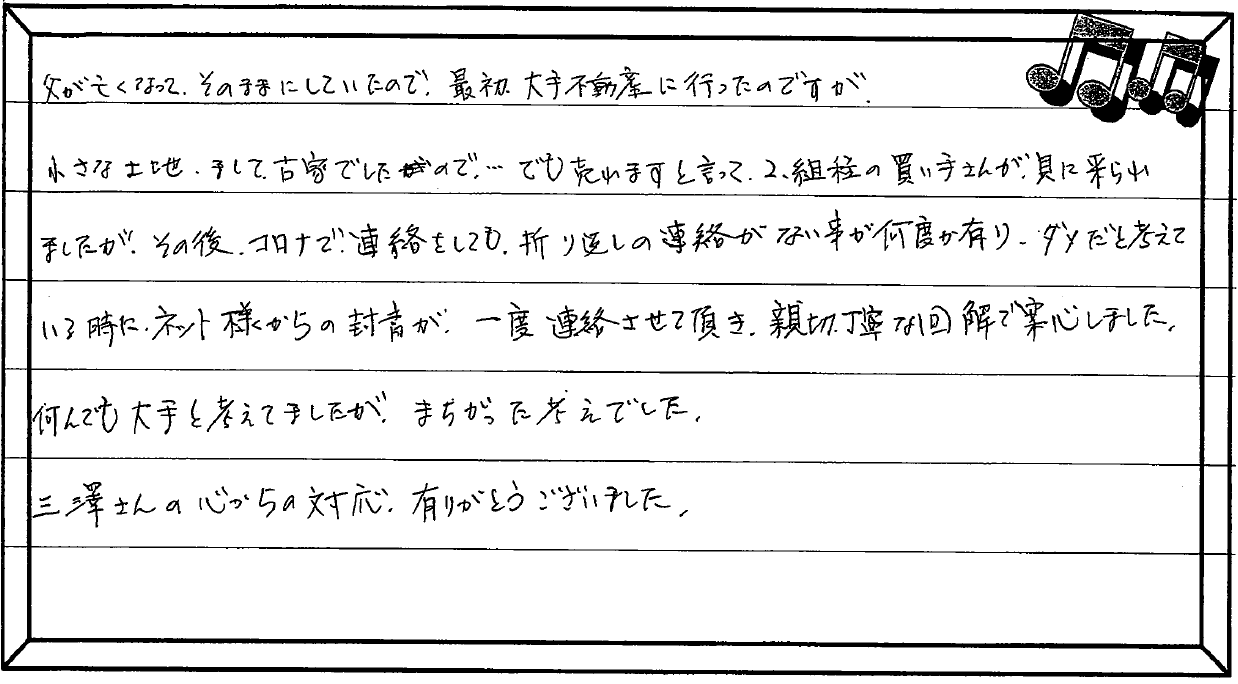 父が亡くなって、そのままにしていたので、最初、大手不動産に行ったのですが、
小さな土地、そして、古家でしたので、…でも売れますと言って、2、3組程の買い手さんが、見に来られ
ましたが、その後、コロナで、連絡をしても、折り返しの連絡がない事が何度か有り、ダメだと考えて
いる時に、ネット様からの封書が、一度連絡させて頂き、親切、丁寧な回解で安心しました。
何んでも大手と考えてましたが、まちがった考えでした。
三澤さんの心からの対応、有りがとうございました。